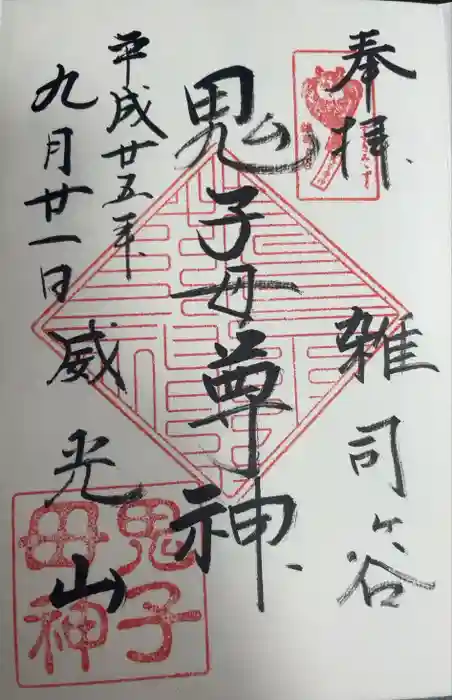 奉拝
雑司ヶ谷
鬼子母尊神
平成廿五年
九月廿一日
威光山
鬼子
母神